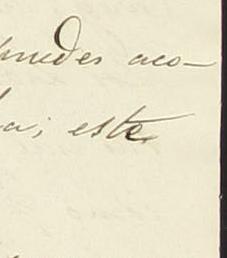 puedes aco-
a; este